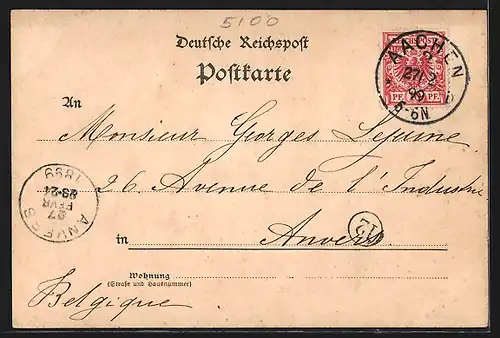 5100
Deutsche Reichspost
Postkarte
AACHEN
2
27/2
99
5-6N
PF. PF.
An
Monsieur Georges Lejeune
26 Avenue de l'Industrie
in Anvers
12
ANVERS
27
FEVR
23-24
1899
Wohnung
(Straße und Hausnummer)
Belgique